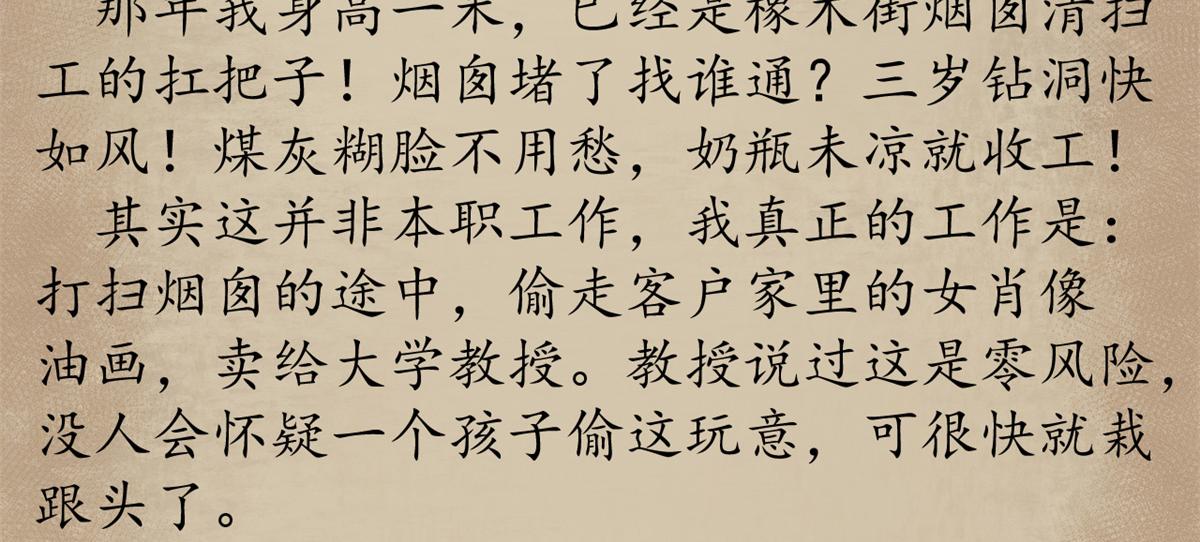 那年我身高一米，已经是橡木街烟囱清扫
工的扛把子！烟囱堵了找谁通？三岁钻洞快
如风！煤灰糊脸不用愁，奶瓶未凉就收工！
其实这并非本职工作，我真正的工作是：
打扫烟囱的途中，偷走客户家里的女肖像
油画，卖给大学教授。教授说过这是零风险，
没人会怀疑一个孩子偷这玩意，可很快就栽
跟头了。